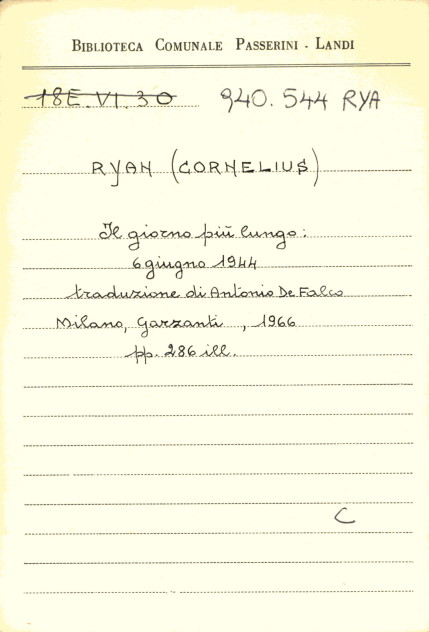 BIBLIOTECA COMUNALE PASSERINI - LANDI
18E.VI.30 940.544 RYA
RYAN (CORNELIUS)
Il giorno più lungo:
6 giugno 1944
traduzione di Antonio De Falco
Milano, Garzanti , 1966
pp. 286 ill.
C